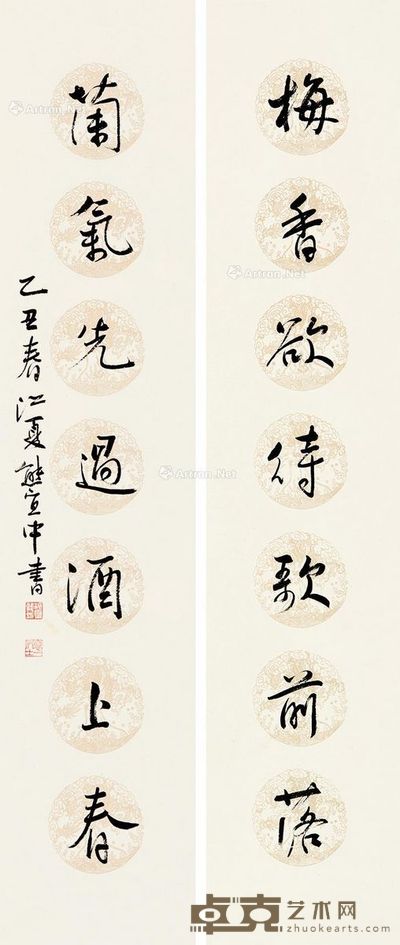 梅香欲待歌前落
蘭氣先過酒上春
乙丑春江夏熊宜中書
Artron.Net
Artron.Net
Artron.Net
Artron.Net
卓克艺术网
zhuokearts.com